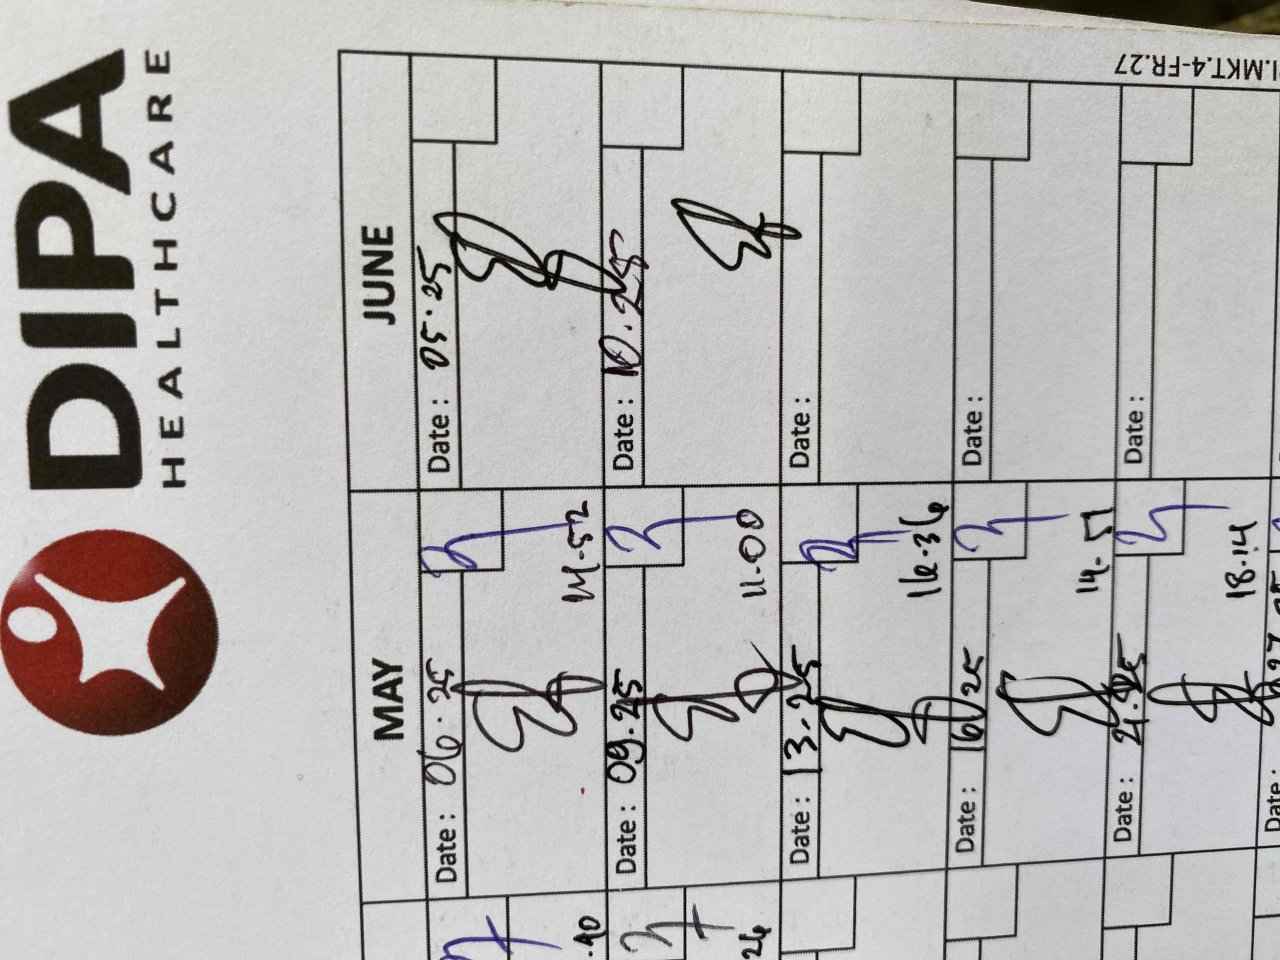 DIPA
HEALTHCARE
I.MKT.4-FR.27
MAY
JUNE
Date : 06.25
14.52
Date : 05.25
Date : 09.25
11.00
Date : 10.25
Date : 13.25
16.36
Date :
Date : 16 25
14.51
Date :
Date : 21.25
18.14
Date :
Date :
.40
24